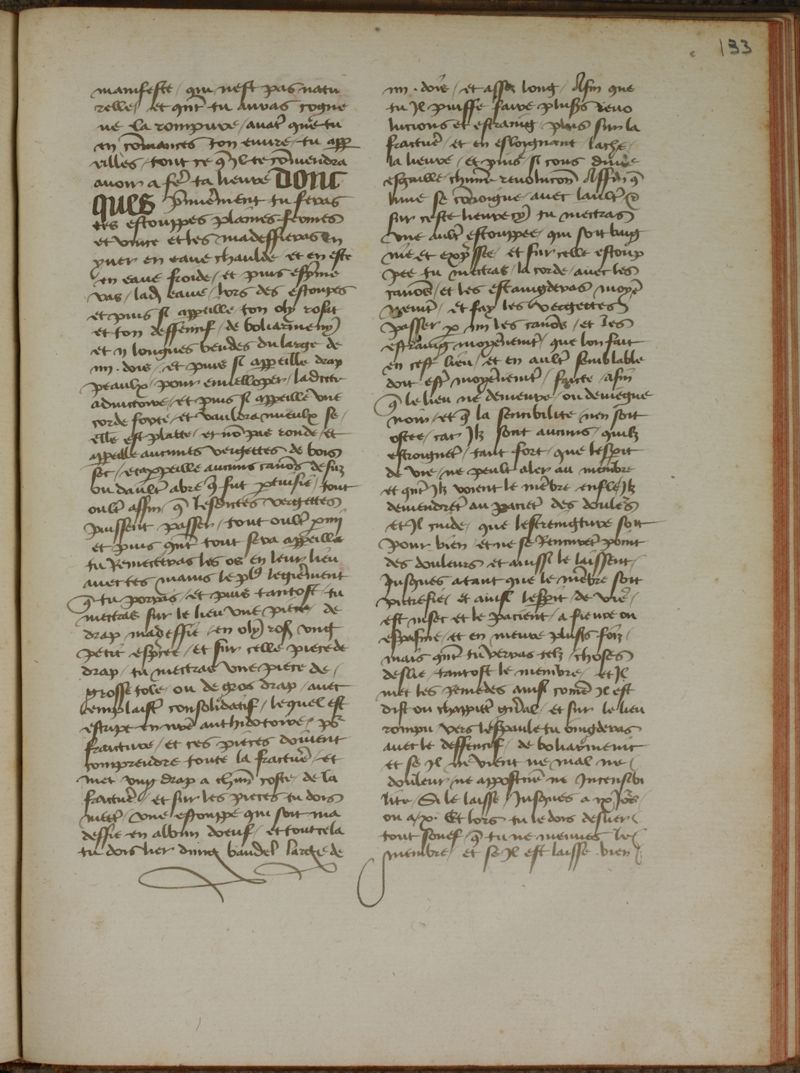 133
manifeste / qui nest pas natu
relle / et qnt tu auras cogne
ue la rompure / auat que tu
en comances ton euure / tu app
rilles / tout ce qil te conuendra
auoir a fer ta lieure Donc
ques primierment tu feras
tes estouppes plaines
et les madeffieras en
yuer en eaue chaulde et en este
en eaue froide / et puis esprime
ras / lad eaue / hors des estoupes
et puis si appeille ton oly rosat
et ton deffensif / de boliarmenyc
et ij longues bendes du large de
iiij . dois / et puis si appeille drap
peaulx / pour enuelloper / ladicte
adiuctore / et puis si appeille une
corde et vauldra mieulx se /
elle est platte / et no pas ronde / et
appeille aucunes vergettes de bois
sec / et appeille aucuns canons de suz
ou daultr abre q fut pertuisie / tout
oultr affin q lesdictes vergettes
puissent passer / tout oultr
et puis qnt tout sera appeille
tu remecteras les os en leur lieu
auec tes mains le pl9 legierement
q tu porras / et puis tantost tu
mectras sur le lieu une piece de
drap madeffie / en oly ros ung
petit / et sur celle piece de
drap / tu mectras une piece de /
grosse tole / ou de gros drap / auec
lemplaistr consolidatif / lequel est
escript en nre anthidotore / pr
fracture / et ces pieces doiuent
comprendre toute la fractur / et
met ung drap a chun coste / de la
fractur / et sur les pieces tu dois
mectr / une estouppe qui soit ma
deffie en albun doeuf / et tout cela
tu dois lier dung bandel large de
iiij . dois / et asses long / Afin que
tu il puisse faire plus's reuo
lucions et estraing plus sur la
fractur / et en esloignant lache /
la lieure / et puis si
chune reuolucon Affin q
lune se conioigne / auec laultr
sur ceste lieure tu mectras
une aultr estouppee / qui soit baig
nie et expssee / et sur celle estoup
pee tu mectras / la corde / auec les
canons / et les estraingderas moye
nemt / et fay les vergettes
passer p my les canons / et les
estraing moyenemt / que lon fait
en cest lieu / et en aultr semblable
doit estr moyenemt / faicte / afin
q le lieu ne demeure / ou deuiegne
noir / et q la sencibilite nen soit
ostee / car ilz sont aucuns / quilz
estroignet / tant fort / que lesprit
de vie / ne peult aler au membre
et qnt ilz voient le mebre enfle ilz
demendret au pacient des douleurs
et il cuide / que lestreingture soit
pour bien et ne se point
des douleurs et ainssi le laissent /
Jusques atant que le mebre soit
putrefie / et ainsi lesprit / de vie /
est et le pacient / a fieure ou
espasme / et en meure plus's fois /
mais qnt tu verras telz / choses
deslie / tantost le membre / et il
met les remedes ainsi come il est
dist ou chappitr gnal / et sur le lieu
rompu vers lespaule tu oingderas
auec le deffencif / de boliarmenic
et se il ny vient ne mal ne /
douleur / ne apposteme ne Incensibi
lite / Si le laisse / Jusques a ix iors /
ou a / x / Et lors tu le dois deslier
tout souef / q tu ne meuues le
membre / et se il est laisse bien